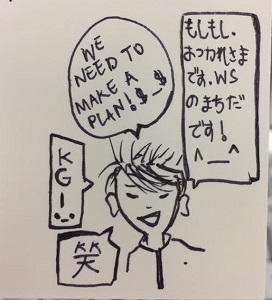 WE
NEED TO
MAKE A
PLAN! $_$
もしもし、
おつかれさま
です。WS
のまちだ
です!
^__^
KGI
笑